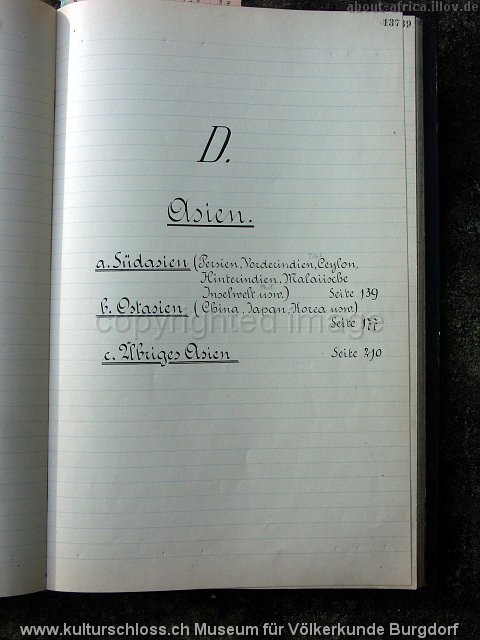 about-africa.illov.de
13739
D.
Asien.
a. Südasien (Persien, Vorderindien, Ceylon,
Hinterindien, Malaiische
Inselwelt usw.) Seite 139
b. Ostasien (China, Japan, Korea usw.)
copyrighted image
Seite 177
c. Übriges Asien Seite 210
www.kulturschloss.ch Museum für Völkerkunde Burgdorf